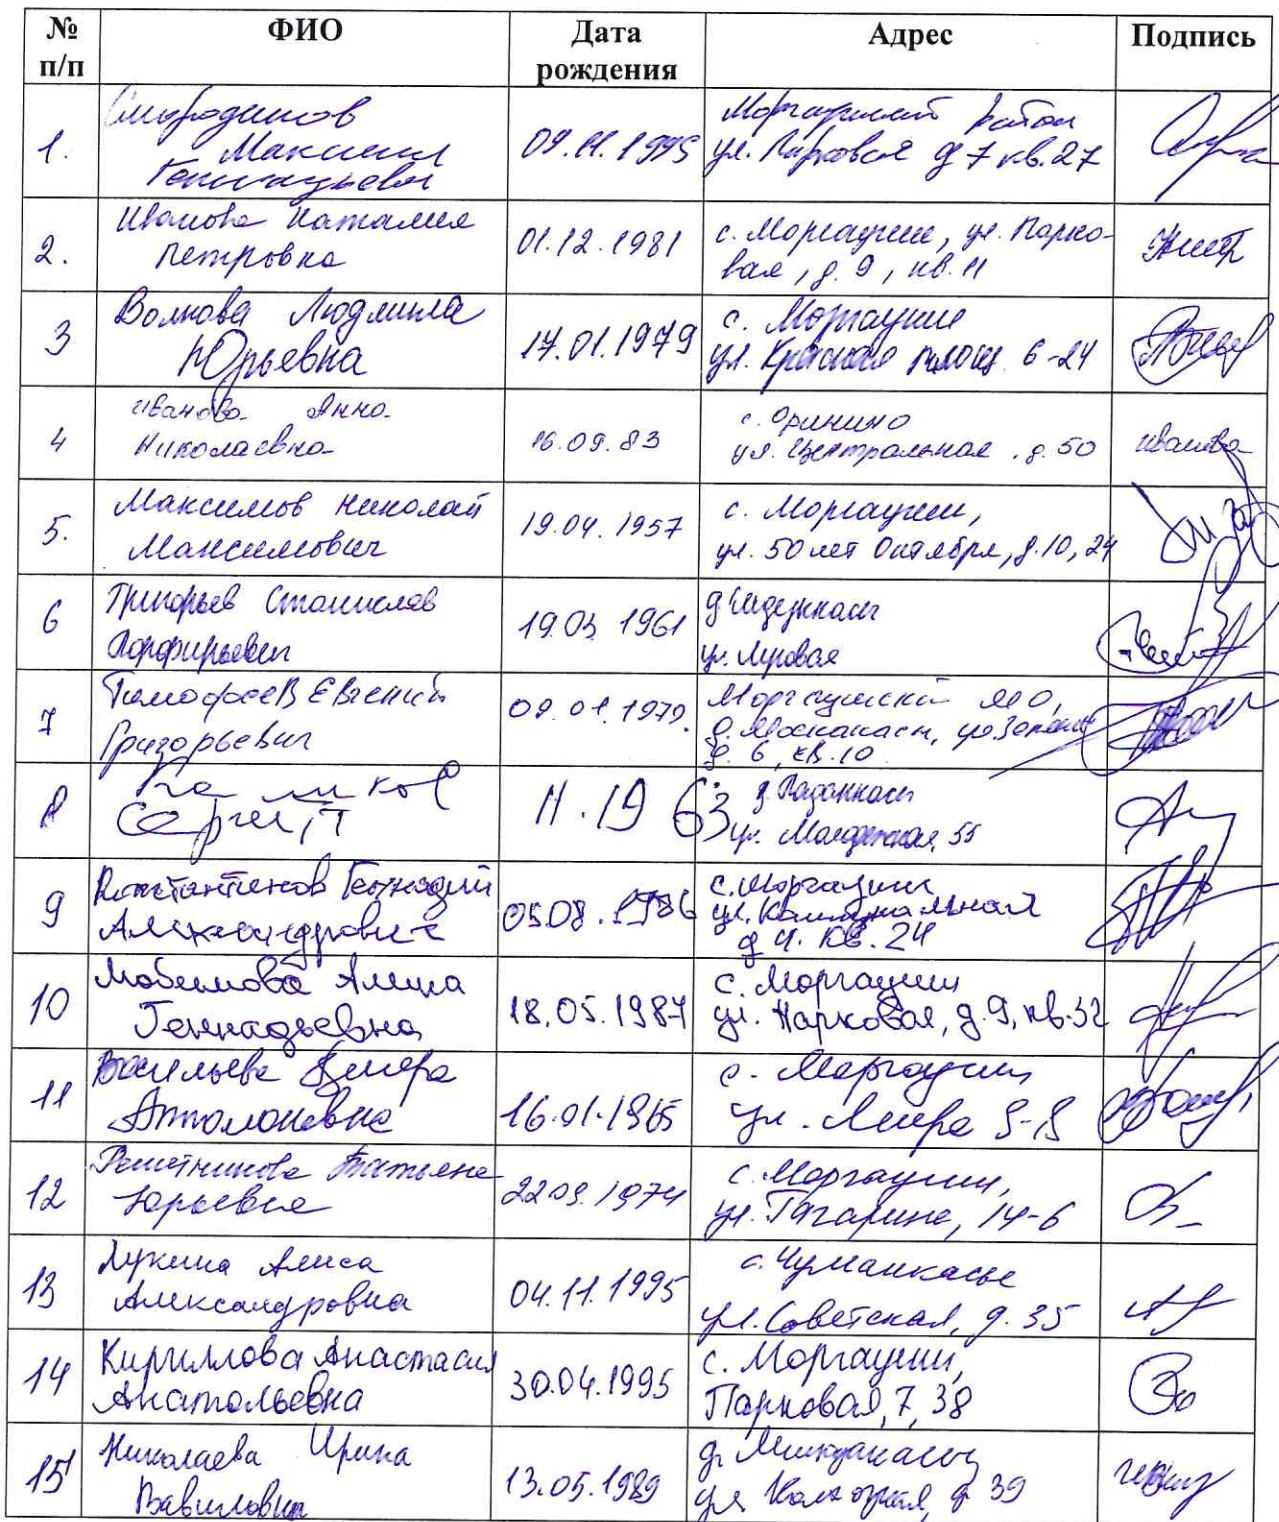 № п/п ФИО Дата рождения Адрес Подпись
1. Смородинов Максим Геннадьевич 09.11.1995 Моргаушский район ул. Парковая д 7 кв. 27
2. Иванова Наталия Петровна 01.12.1981 с. Моргауши, ул. Парковая, д. 9, кв. 11
3 Волкова Людмила Юрьевна 17.01.1979 с. Моргауши ул. Красная площ. 6-24
4 Иванова Анна Николаевна 16.09.83 с. Оринино ул. Центральная, д. 50 Иванова
5. Максимов Николай Максимович 19.04.1957 с. Моргауши, ул. 50 лет Октября, д. 10, 24
6 Григорьев Станислав Порфирьевич 19.03 1961 д ул. Луговая
7 Тимофеев Евгений Григорьевич 09.01.1979. Моргаушский МО, д. Москакасы, д. 6, кв. 10
8 Сергей 11.1963 ул. Молодежная, 55
9 Константинов Геннадий Александрович 05.08.1986 с. Моргауши ул. Коммунальная д 4. кв. 24
10 Алина Геннадьевна 18.05.1987 с. Моргауши ул. Парковая, д. 9, кв. 32
11 Васильева 16.01.1965 с. Моргауши ул. Мира
12 Решетникова Татьяна Юрьевна 22.09.1974 с. Моргауши, ул. Гагарина, 14-6
13 Лукина Алиса Александровна 04.11.1995 с. Чуманкасы ул. Советская, д. 35
14 Кириллова Анастасия Анатольевна 30.04.1995 с. Моргауши, Парковая, 7, 38
15 Николаева Ирина Вавиловна 13.05.1989 д. ул. 39